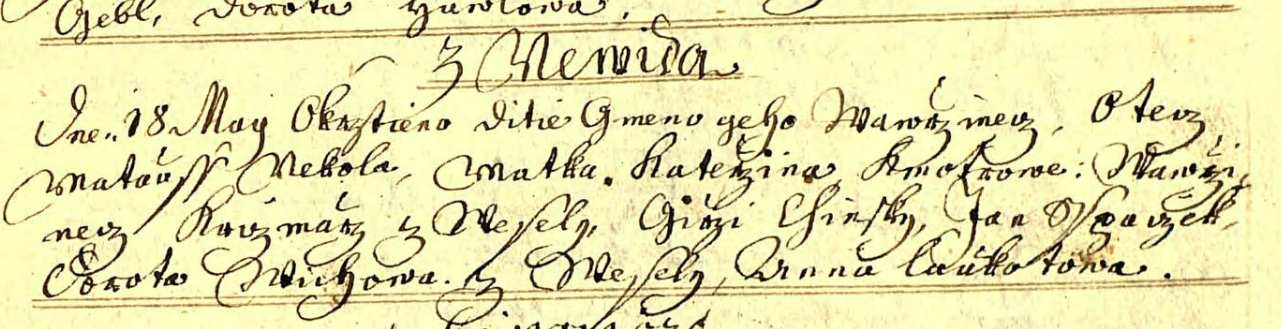 Gebl, Dorota Hawlowa.
z Newida
Dne 18 May Okrztieno ditie Gmeno geho Wawrzinecz, Otecz
Matauss Nekola, Matka. Katerzina Kmotrowe: Wawrzi,
necz Krczmarz z Wesely, Girzi Chinsky, Jan Sspaczek,
Dorota Wichowa. z Wesely, Anna Laukotowa.